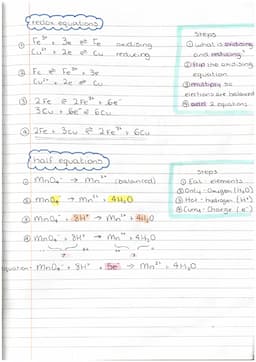 redox equations
① Fe³⁺ + 3e ⇌ Fe oxidising
Cu²⁺ + 2e ⇌ Cu reducing
② Fe ⇌ Fe³⁺ + 3e
Cu²⁺ + 2e ⇌ Cu
③ 2Fe ⇌ 2Fe³⁺ + 6e⁻
3Cu + 6e⁻ ⇌ 6Cu
④ 2Fe + 3Cu ⇌ 2Fe³⁺ + 6Cu
Steps
① what is oxidising
and reducing?
② flip the oxidising
equation
③ multiply so
electrons are balanced
④ add 2 equations
half equations
① MnO₄⁻ → Mn²⁺ (balanced)
② MnO₄⁻ → Mn²⁺ + 4H₂O
③ MnO₄⁻ + 8H⁺ → Mn²⁺ + 4H₂O
④ MnO₄⁻ + 8H⁺ → Mn²⁺ + 4H₂O
equation: MnO₄⁻ + 8H⁺ + 5e⁻ → Mn²⁺ + 4H₂O
Steps
① Eat - elements
② Only - Oxygen (H₂O)
③ Hot - hydrogen (H⁺)
④ Curry - Charge (e⁻)